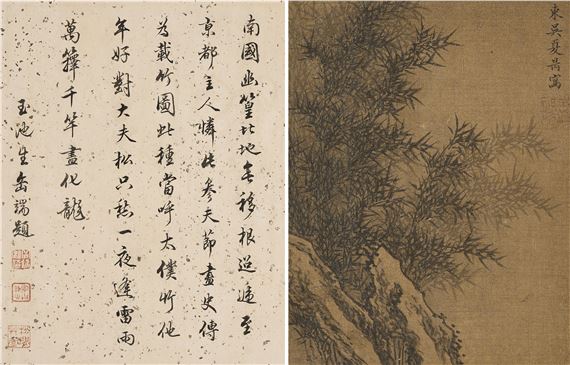 南國幽篁北地無移根迢遞至
京都主人憐此參天節畫史傳
為載竹圖此種當呼太僕竹他
年好對大夫松只愁一夜逢雷雨
萬籜千竿盡化龍
玉池生岳端題
東吳夏昺寫